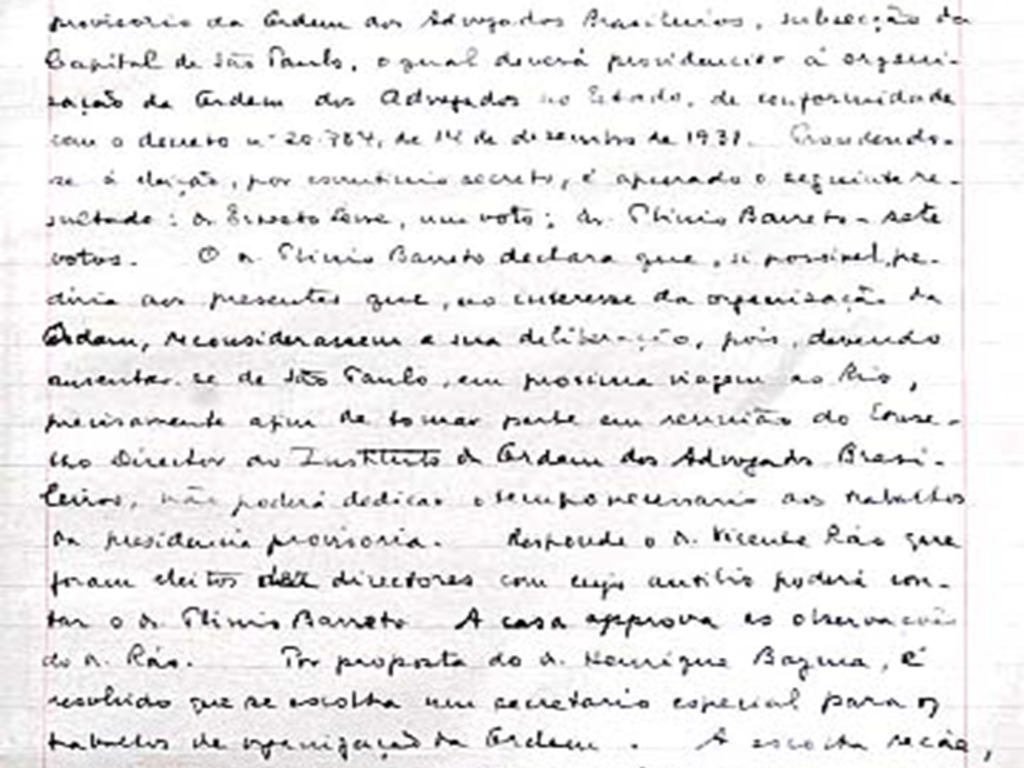 provisorio da Ordem dos Advogados Brasileiros, subsecção da
Capital de São Paulo, o qual deverá providenciar á organi-
sação da Ordem dos Advogados no Estado, de conformidade
com o decreto nº 20.784, de 14 de dezembro de 1931. Procedendo-
se á eleição, por escrutinio secreto, é apurado o seguinte re-
sultado: dr. Ernesto Leme, um voto; dr. Plinio Barreto - sete
votos. O dr. Plinio Barreto declara que, si possivel, pe-
diria aos presentes que, no interesse da organização da
Ordem, reconsiderassem a sua deliberação, pois, devendo
ausentar-se de São Paulo, em proxima viagem ao Rio,
precisamente afim de tomar parte em reunião do Conse-
lho Director do Instituto da Ordem dos Advogados Brasi-
leiros, não poderá dedicar o tempo necessario aos trabalhos
da presidencia provisoria. Responde o dr. Vicente Ráo que
foram eleitos directores com cujo auxilio poderá con-
tar o dr. Plinio Barreto. A casa approva as observações
do dr. Ráo. Por proposta do dr. Henrique Bayma, é
resolvido que se escolha um secretario especial para os
trabalhos de organização da Ordem. A escolha recáe,